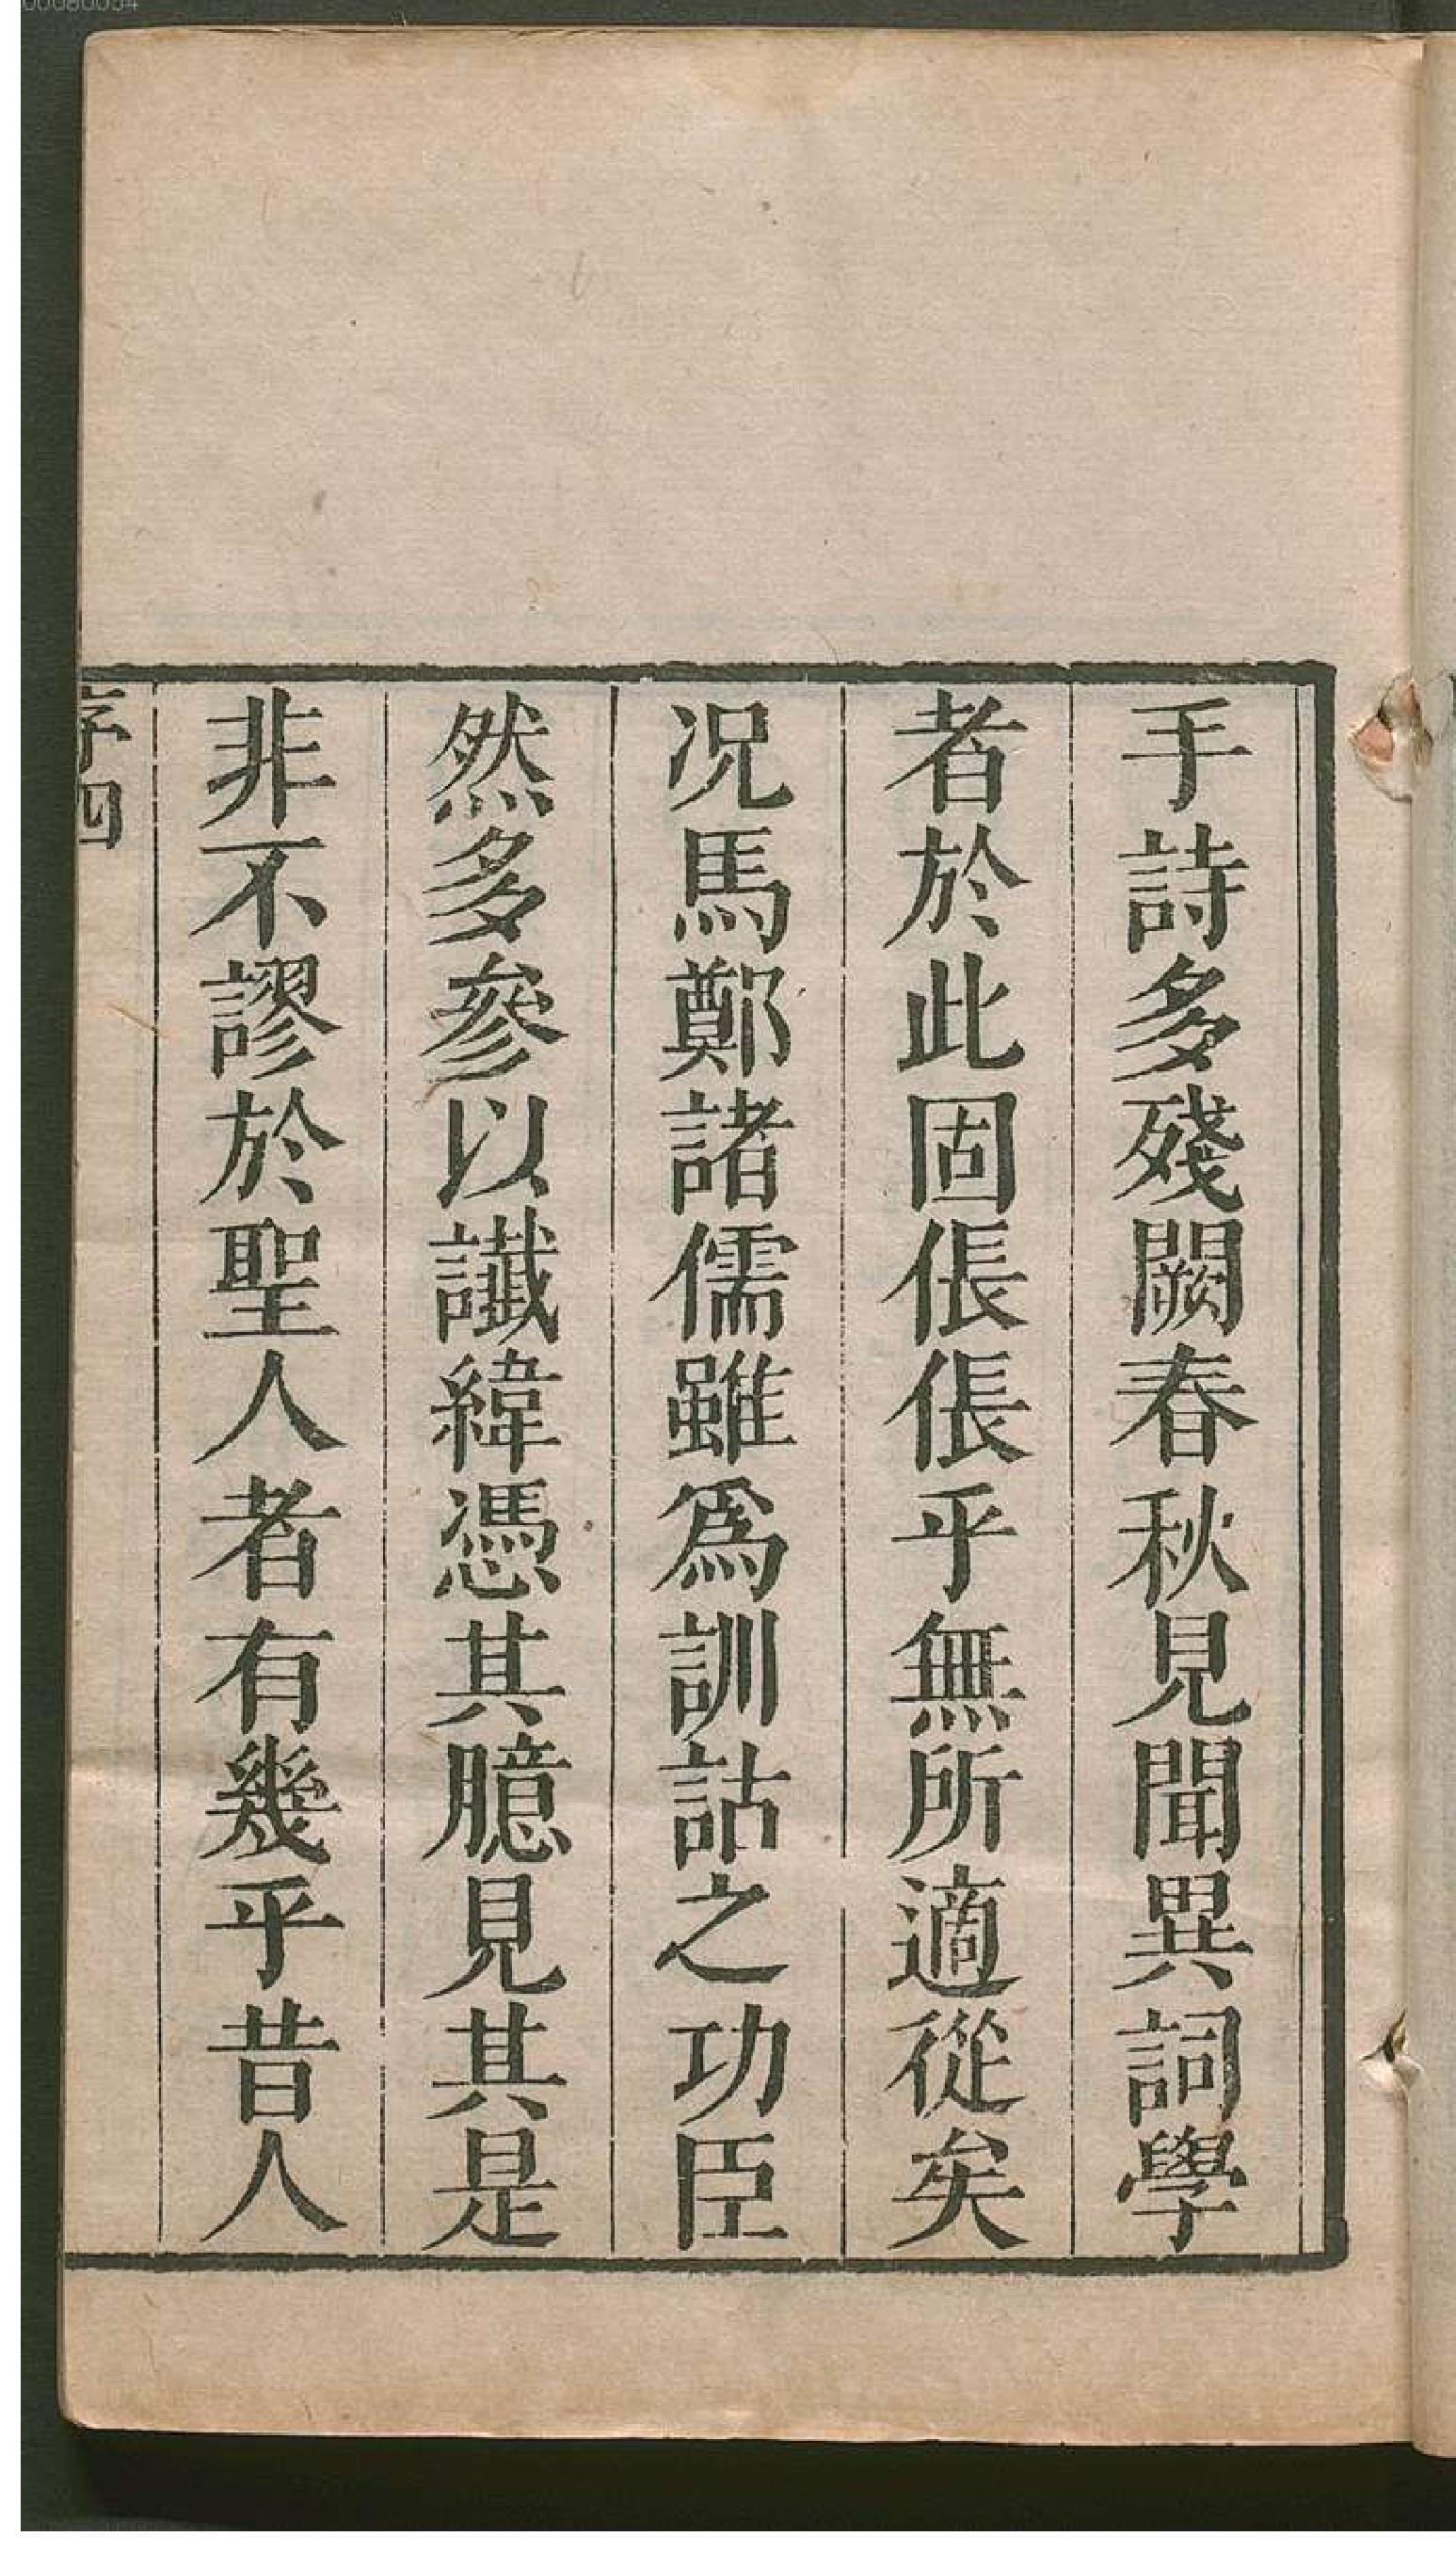 手詩多殘闕春秋見聞異詞學
者於此固倀倀乎無所適從矣
况馬鄭諸儒雖爲訓詁之功臣
然多參以讖緯憑其臆見其是
非不謬於聖人者有幾乎昔人
序四